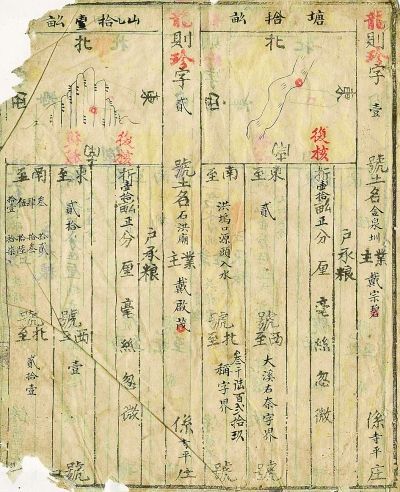 龍則珍字壹號土名金泉圳
業主戴宗碧
係寺平庄
塘拾畝
北
東
後核
戶承粮
折壹拾畝正分厘毫絲忽微
東至貳號
西至大溪右奈字界號
南至洪塢口源頭入水
北至叁千陸百弍拾玖稱字界號
龍則珍字貳號土名石洪廟
業主戴啟茂
係寺平庄
山拾壹畝
北
東
西
後核
戶承粮
折壹拾畝正分厘毫絲忽微
東至貳拾號
西至壹號
南至叁
拾貳
北至貳拾壹號